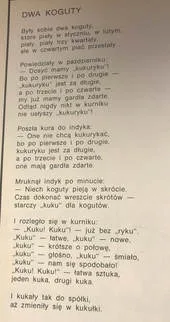 DWA KOGUTY
Były sobie dwa koguty,
które piały w styczniu, w lutym,
piały, piały trzy kwartały,
ale w czwartym piać przestały
Powiedziały w październiku:
— Dosyć mamy „kukuryku"!
Bo po pierwsze i po drugie —
„kukuryku" jest za długie,
a po trzecie i po czwarte —
my już mamy gardła zdarte.
Odtąd nigdy nikt w kurniku
nie usłyszy „kukuryku"!
Poszła kura do indyka:
— One nie chcą kukurykać,
bo po pierwsze, i po drugie,
kukuryku jest za długie,
a po trzecie, i po czwarte,
one mają gardła zdarte.
Mruknął indyk po minucie:
— Niech koguty pieją w skrócie.
Czas dokonać wreszcie skrótów —
starczy „kuku" dla kogutów.
I rozległo się w kurniku:
— „Kuku! Kuku"! — już bez „ryku".
„Kuku" — łatwe, „kuku" — nowe,
„kuku" — krótsze o połowę,
„kuku" — głośno, „kuku" — śmiało,
„kuku" — nam się spodobało!
„Kuku! Kuku!" — łatwa sztuka,
jeden kuka, drugi kuka.
I kukały tak do spółki,
aż zmieniły się w kukułki.